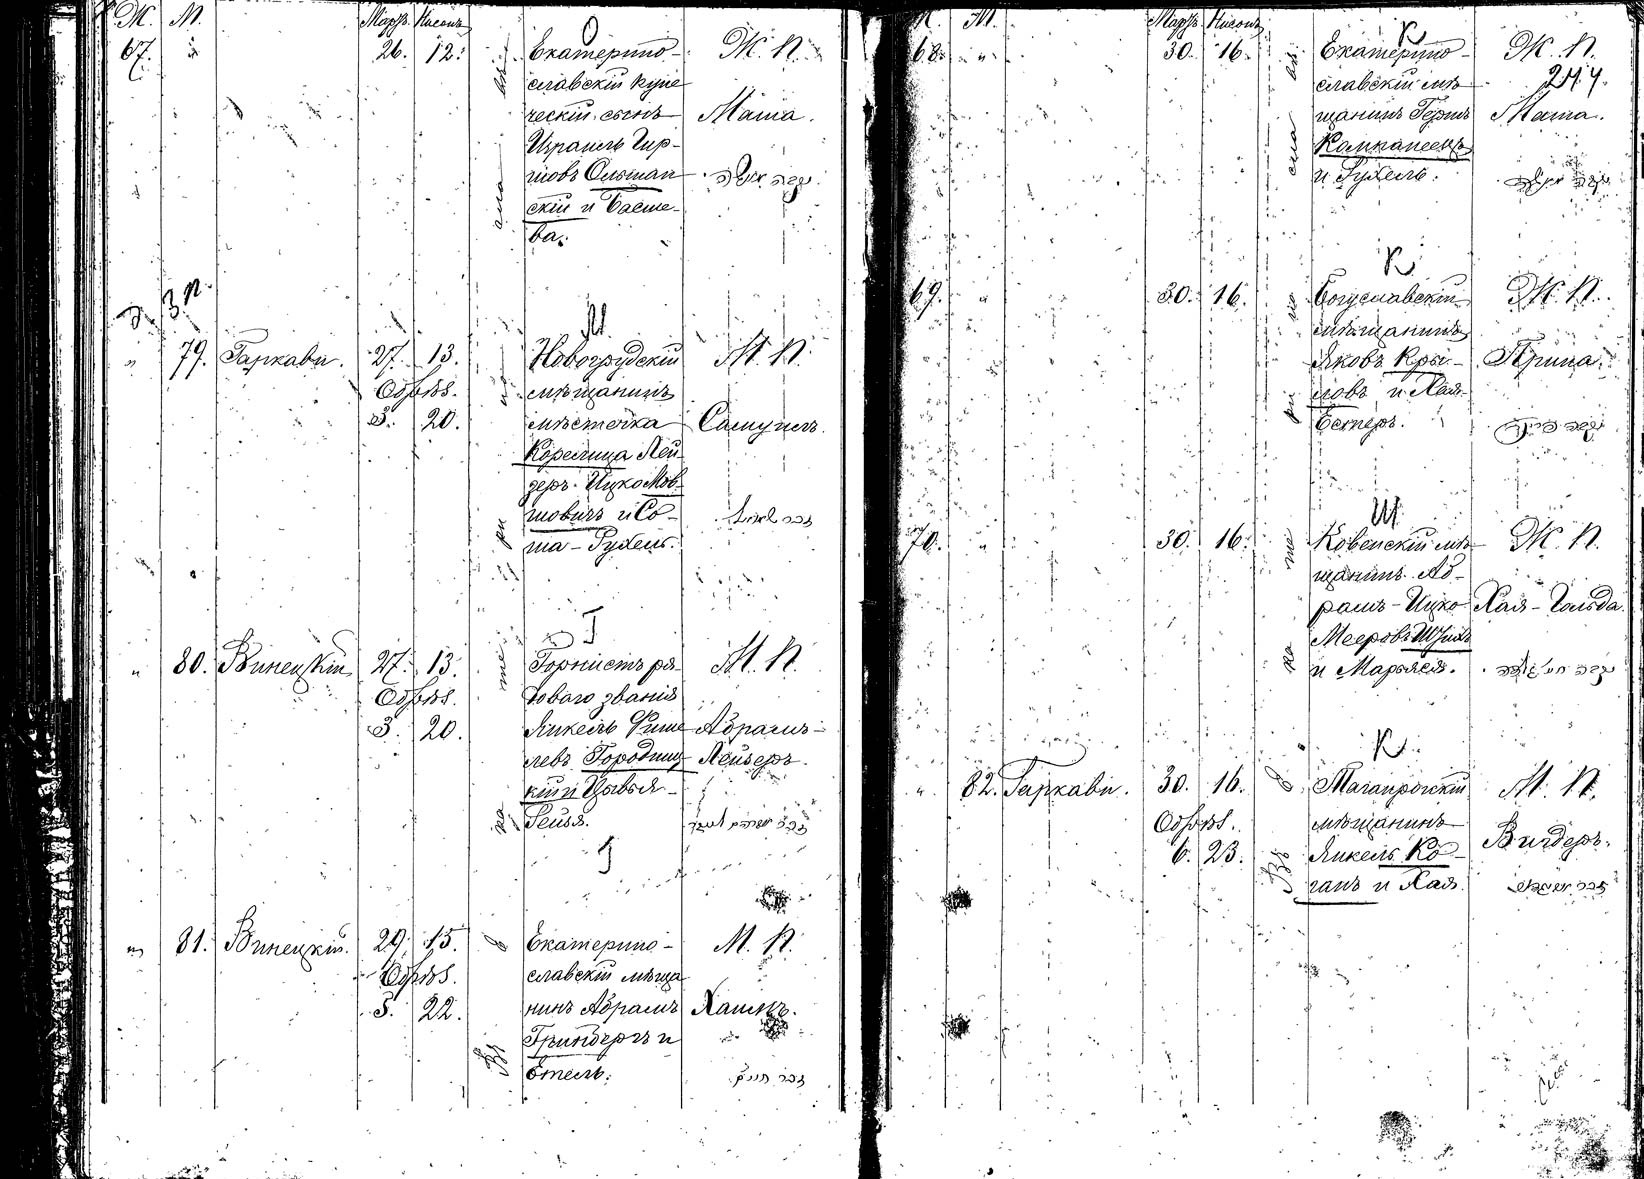 Ж. М. Мартъ Нисонъ
67. " 26. 12.
О
Екатерино-
славскій купе
ческій сынъ
Израиль Гир-
шовъ Ольшан
скій и Басше-
ва.
Ж. П.
Маша.
נקבה מאשה
З П.
" 79. Гаркави. 27. 13.
Обрѣз.
3. 20.
М
Новогрудскій
мѣщанинъ
мѣстечка
Корелица Лей
зеръ-Ицко Мов
шовичъ и Со-
ша-Рухель.
М. П.
Самуилъ.
זכר שמואל
" 80. Винецкій 27. 13.
Обрѣз.
3. 20.
Г
Горнистъ ря-
доваго званія
Янкель Фише
левъ Городищ
кій и Цывья-
Гейся.
М. П.
Абрамъ-
Лейзеръ.
זכר אברהם לייזר
" 81. Винецкій. 29. 15.
Обрѣз.
5. 22.
Г
Екатерино-
славскій мѣща
нинъ Абрамъ
Гринбергъ и
Етель.
М. П.
Хаимъ.
זכר חיים
Ж. М. Мартъ Нисонъ
68. " 30. 16.
К
Екатерино-
славскій мѣ-
щанинъ Гершъ
Компанеецъ
и Рухель.
Ж. П.
244.
Маша.
נקבה מאשה
69. " 30. 16.
К
Богуславскій
мѣщанинъ
Яковъ Кры-
ловъ и Хая-
Естеръ.
Ж. П.
נקבה
70. " 30. 16.
Ш
Ковенскій мѣ-
щанинъ Аб-
рамъ-Ицко
Мееровъ
и Марьяся.
Ж. П.
Хая-Гольда.
נקבה חיי גולדה
" 82. Гаркави. 30. 16.
Обрѣз.
6. 23.
К
Таганрогскій
мѣщанинъ
Янкель Ко-
ганъ и Хая.
М. П.
זכר